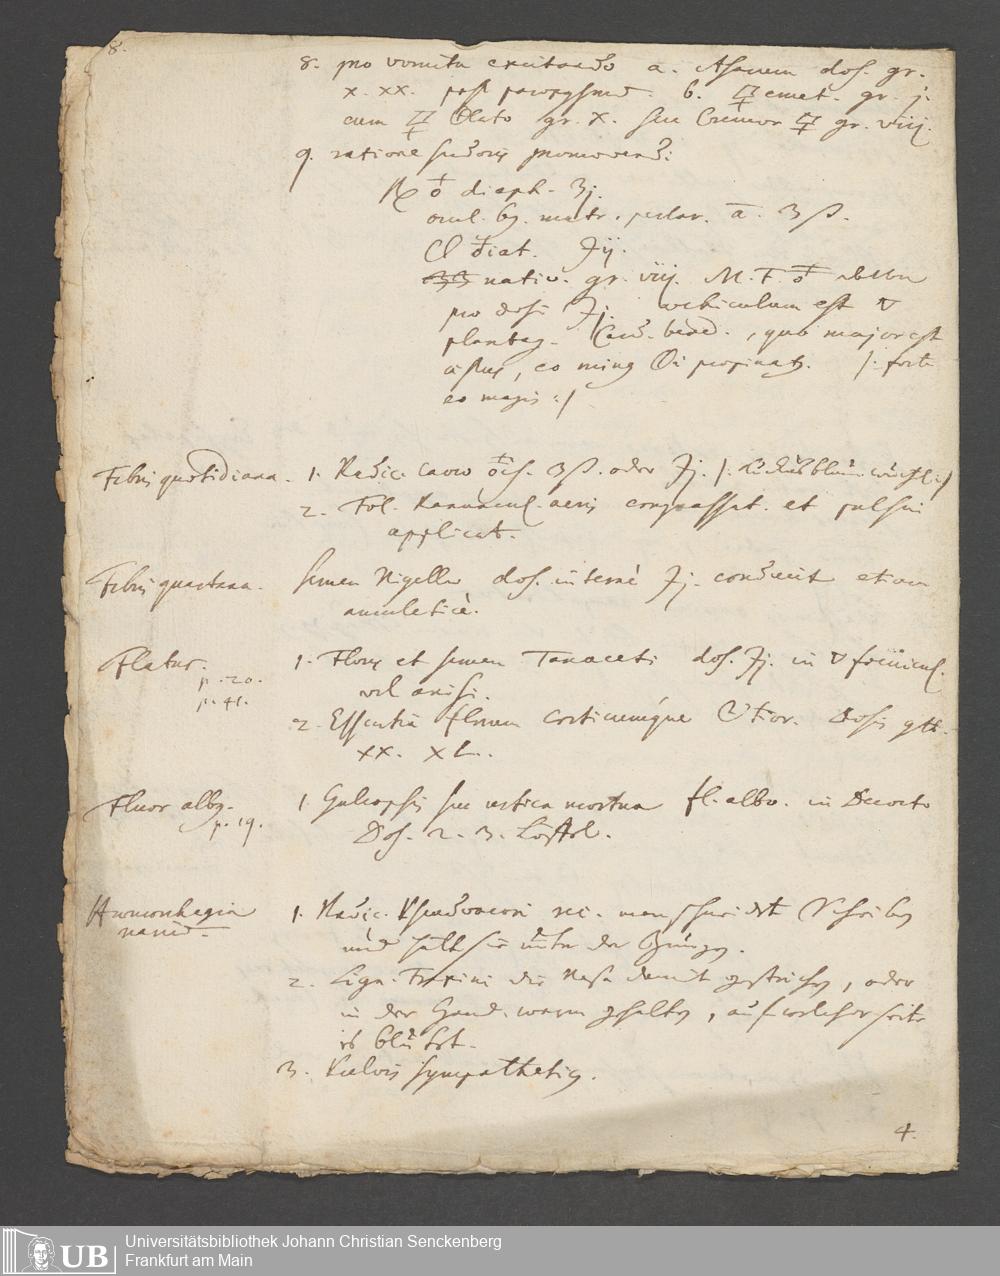 8.
8. pro vomitu excitando a. Asarum dos. gr.
x. xx. post paroxysmum. b. 🜿 emet. gr. j.
cum 🜿 Olato gr. x. seu Cremor 🜿 gr. viij.
9. ratione sudoris promovend:
℞ diaph. ʒj.
ocul. 69. matr. perlar. a. ʒß.
diat. ℈ij.
nativ. gr. viij. M. F.
pro dosi ℈j. vehiculum est ▽
plantag. Card. bened., quo major est
aestus, eo minus propinatur. /: forte
eo magis :/
Febris quotidiana. 1. Radic. ʒß. oder ℈j.
2. Fol. Ranuncul. conquassat. et pulsui
applicat.
Febris quartana. semen Nigellae dos. internè ℈j. conducit etiam
amuleticè.
Flatus. 1. Flores et semen Tanaceti dos. ℈j. in ▽ foenicul.
p. 20.
p. 41.
vel anisi.
2. Essentia florum corticumque Dosis gtt.
xx. XL.
Fluor albus. 1. Galeopsis seu urtica mortua fl. albo. in Decocto
p. 19.
Dos. 2. 3. Löffel.
Haemorrhagia 1. Radic. rec. man schneidet Scheiben
narium.
und halt sie unter der Zungen.
2. Lign. Fraxini die Nase damit gestrichen, oder
in der Hand warm gehalten, auf welcher seite
es blutet.
3. Pulvis sympatheticus.
4.
UB Universitätsbibliothek Johann Christian Senckenberg
Frankfurt am Main